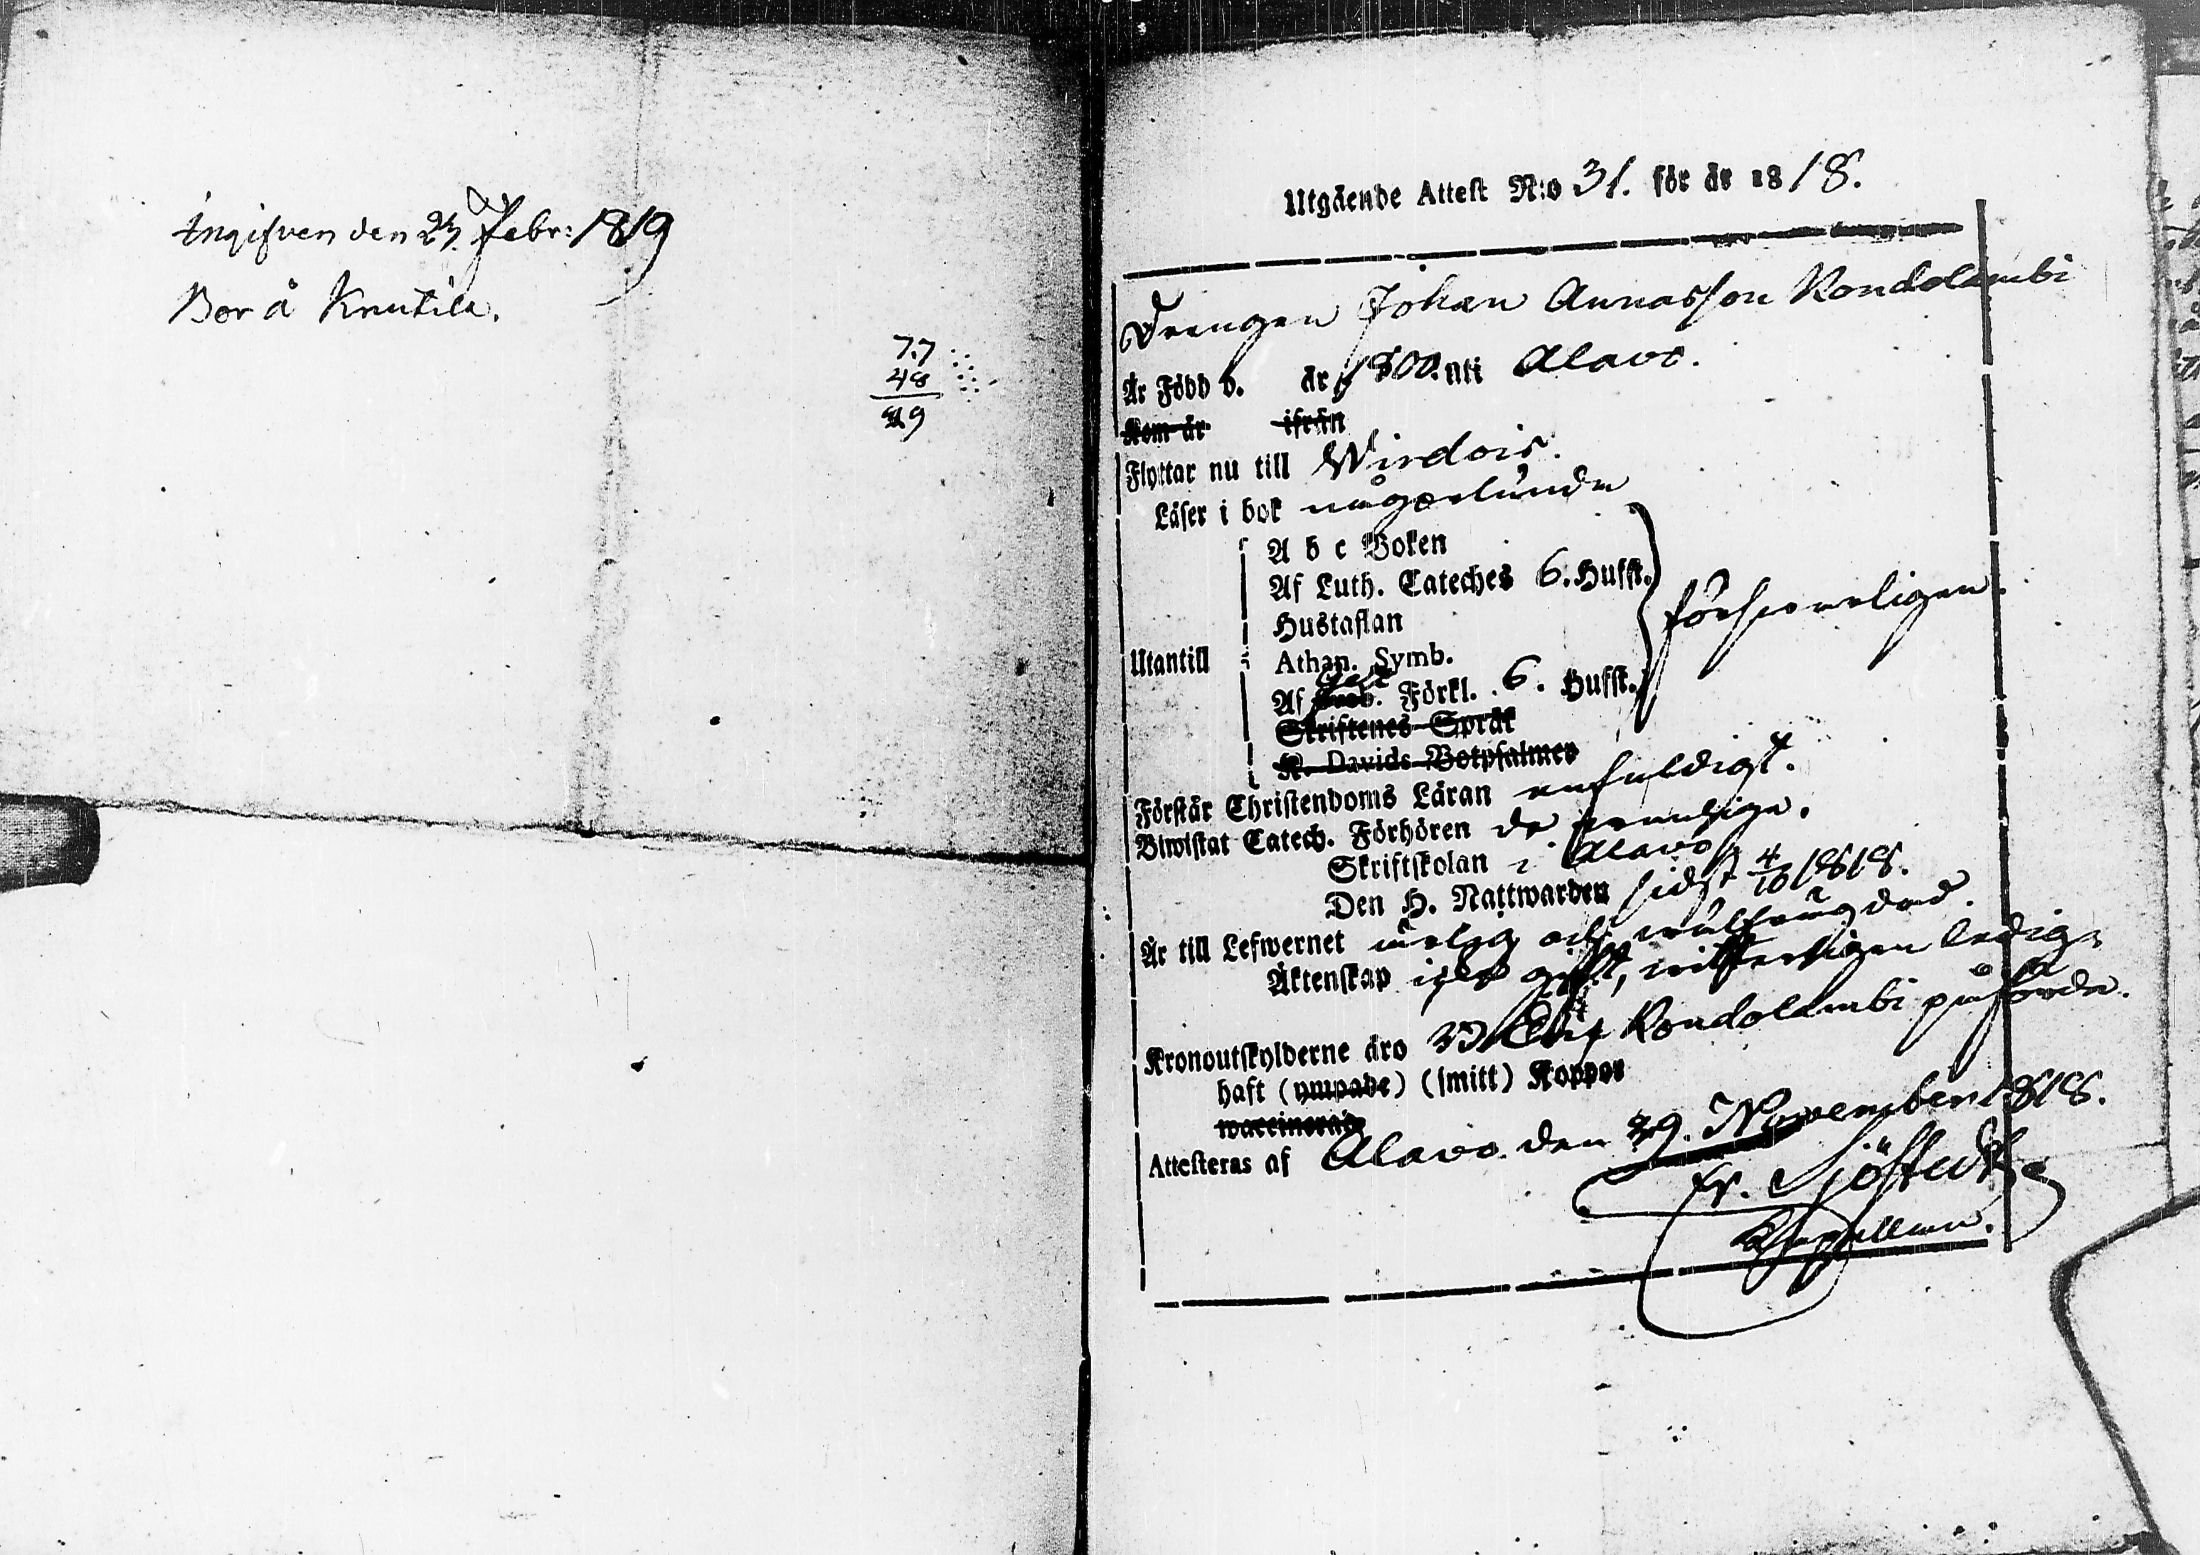 Ingifven den 27 Febr: 1819
Bor å Knutila.
77
48
29
Utgående Attest N:o 31. för år 1818.
Drengen Johan Annasson Rondolambi
Är Född d. år 1800. uti Alavo.
Kom år ifrån
Flyttar nu till Wirdois.
Läser i bok någorlunda
A b c Boken
Af Luth. Cateches 6. Hufst.
Hustaflan
försvarligen.
Utantill
Athan. Symb.
Af Förkl. 6. Hufst.
Skriftenes Språk
K. Davids Botpsalmer
Förstår Christendoms Läran enfuldigt.
Biwistat Catech. Förhören de
Skriftskolan i Alavo
Den H. Nattwarden sidst 4/10 1818.
Är till Lefwernet ärlig och wälfrägdad.
Äktenskap icke gift, witterligen ledig.
Kronoutskylderne äro Rondolambi påförde.
haft (ympade) (smitt) Koppor
waccinerad
Attesteras af Alavo den 29. November 1818.
Fr. Sjöstedt
Capellan.